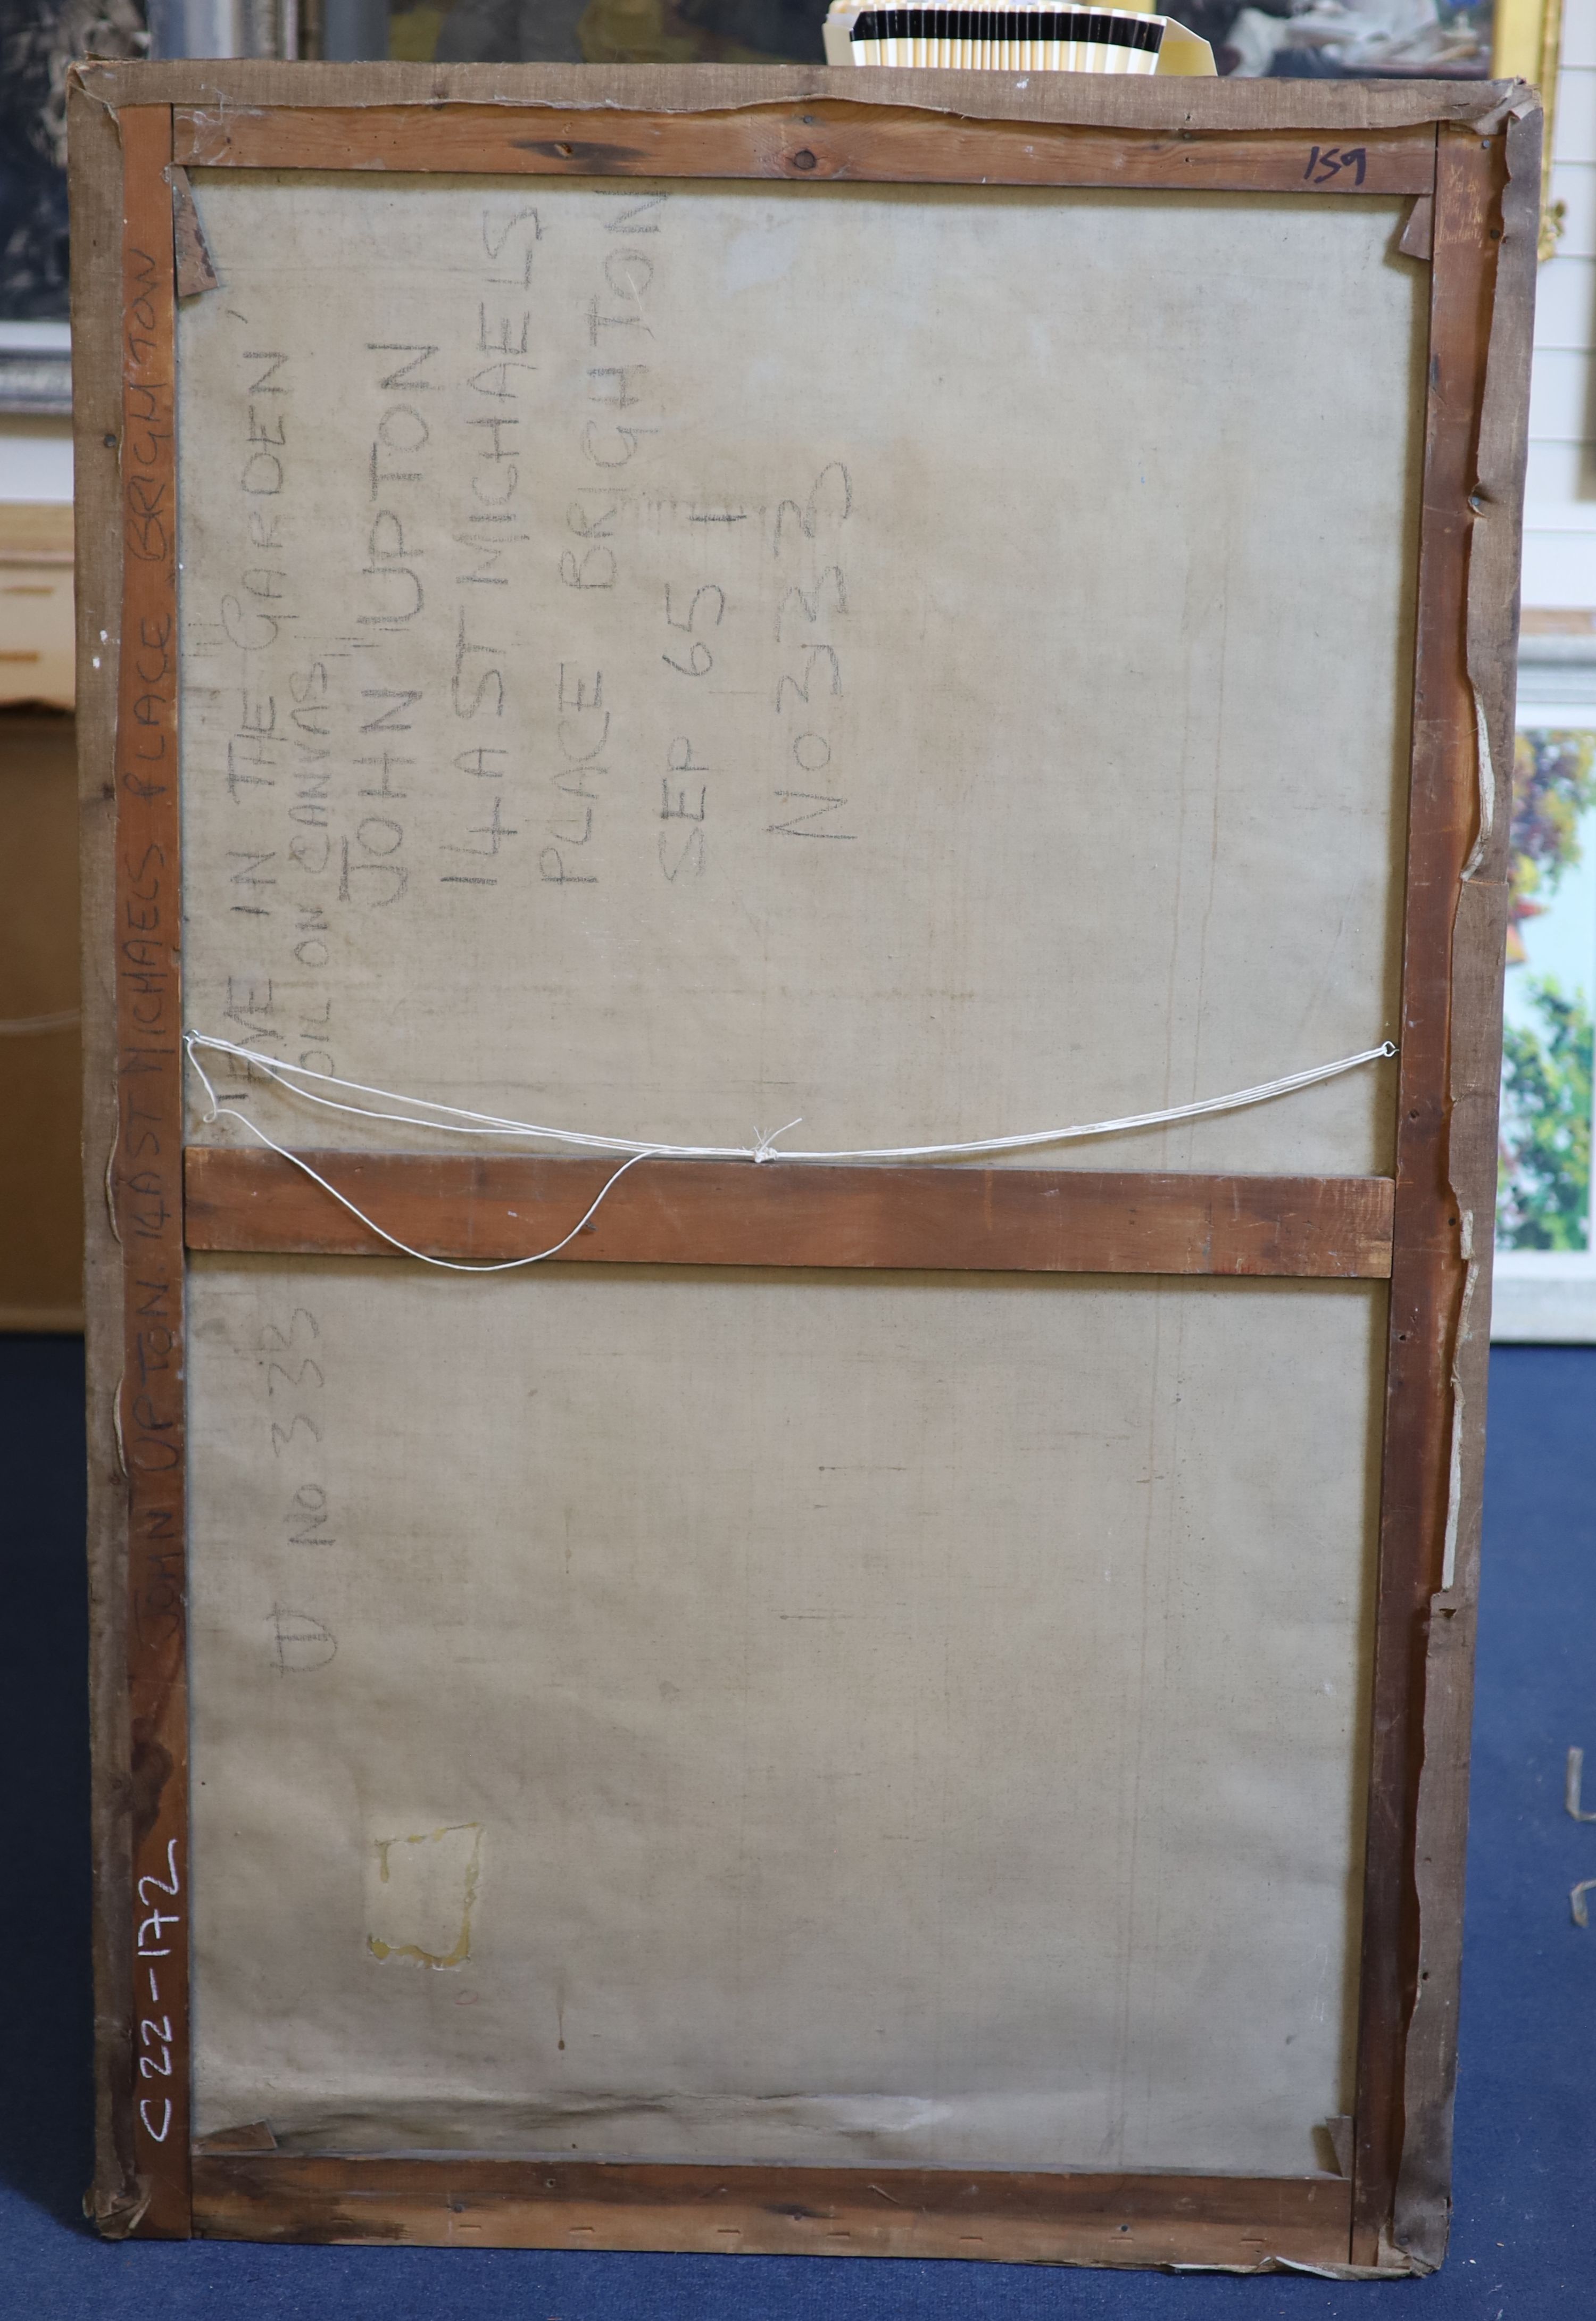 159
JOHN UPTON. 14A ST MICHAELS PLACE BRIGHTON
'EVE IN THE GARDEN'
OIL ON CANVAS
JOHN UPTON
14A ST MICHAELS
PLACE BRIGHTON
SEP 65 1
No 333
U No 333
C22-172